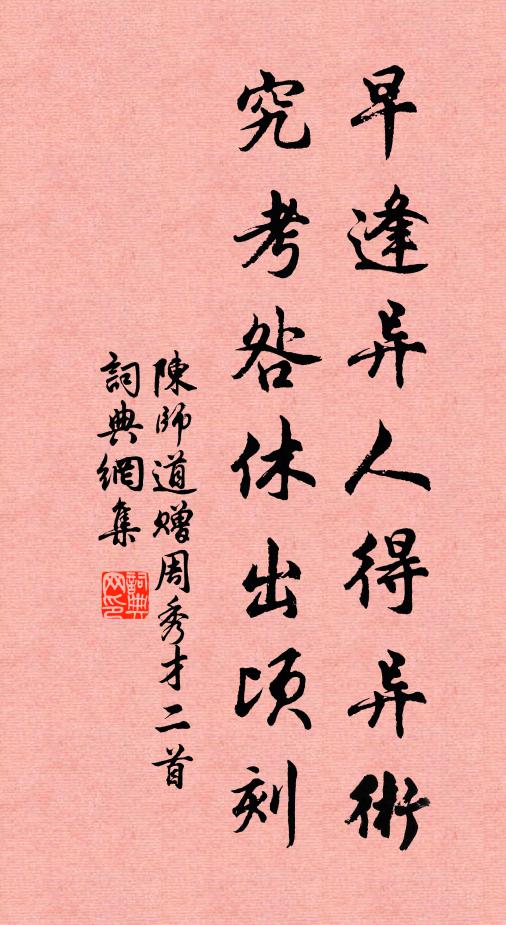 早逢异人得异術
究考咎休出頃刻
陳師道贈周秀才二首
詞典網集
詞典网印